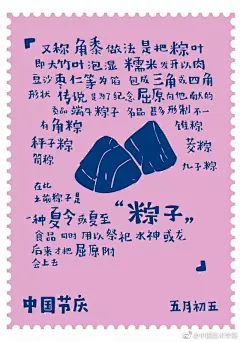 又称 角黍 做法 是 把 粽叶
即大竹叶 泡湿 糯米 发开以肉
豆沙 枣仁等为馅 包成 三角或四角
形状 传说 是为了纪念 屈原
端午粽子 多品 甚多 形制 不一
有 角粽 锥粽
秤子粽 茭粽
筒粽 九子粽
在此
之前 粽子是
一种 夏令或夏至 “粽子”
食品 同时 用以祭祀 水神 或龙
后来才把 屈原 附
会上去
中国节庆 五月初五